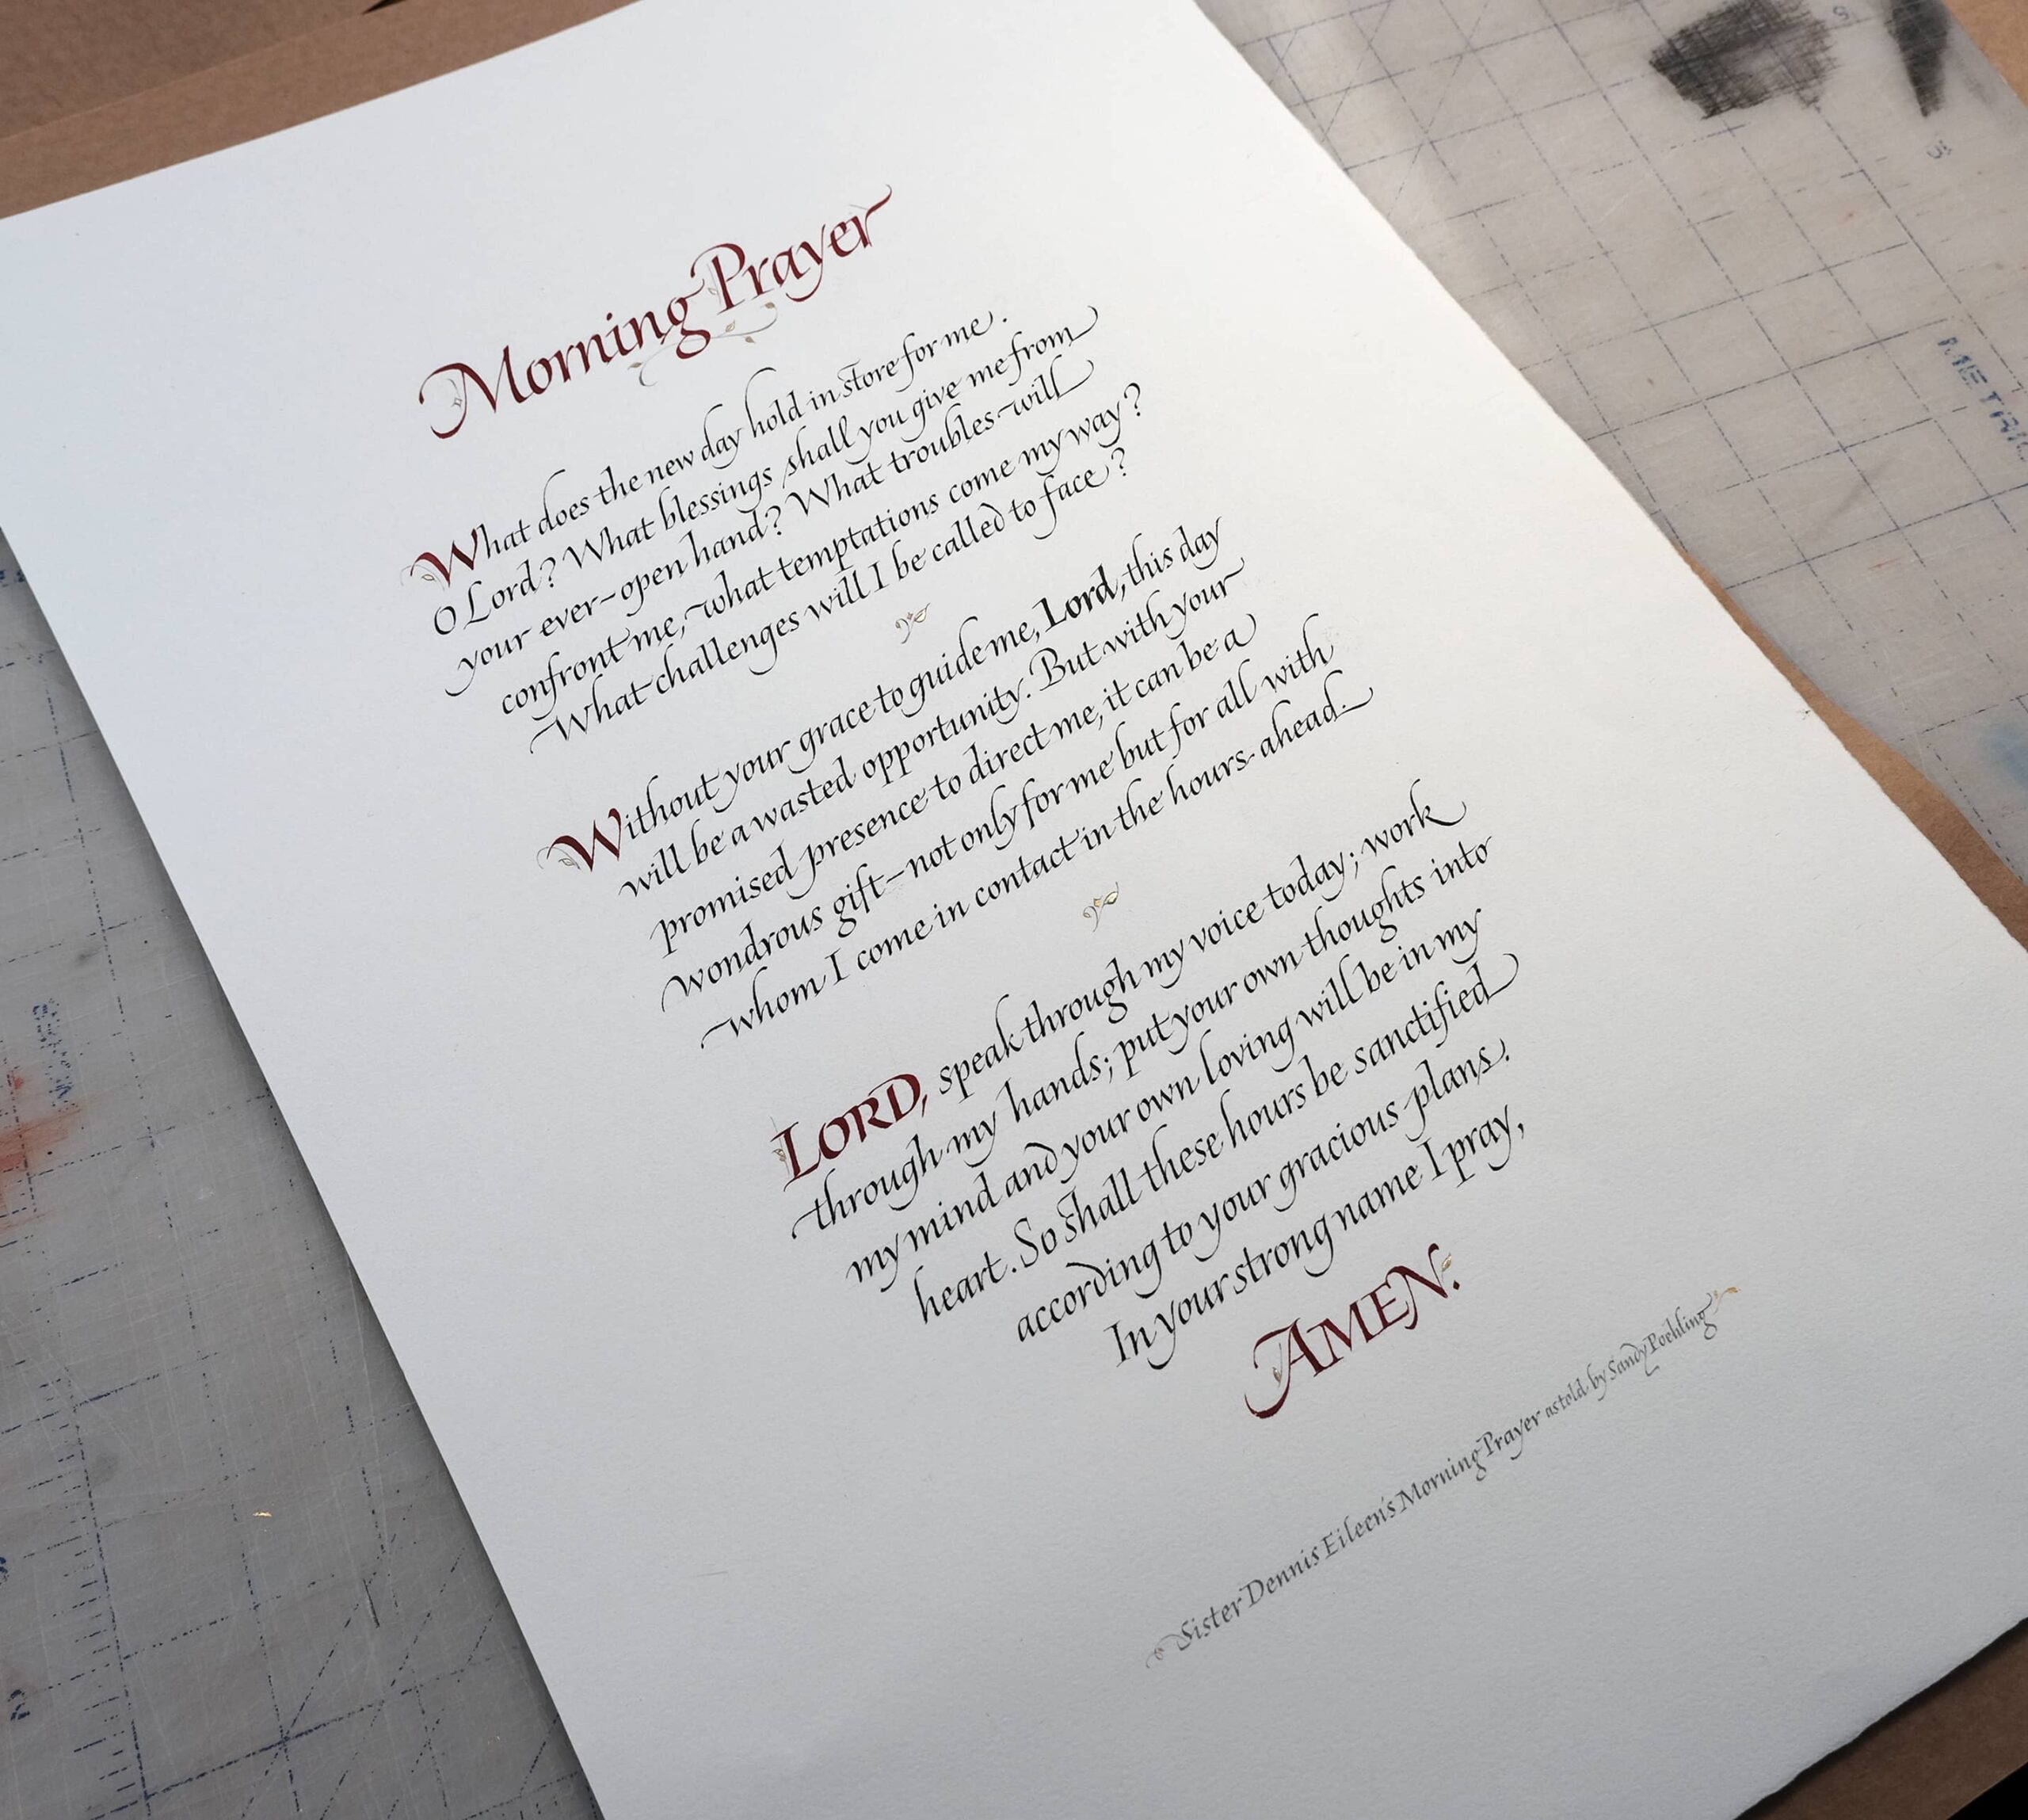 Morning Prayer
What does the new day hold in store for me,
O Lord? What blessings shall you give me from
your ever-open hand? What troubles will
confront me, what temptations come my way?
What challenges will I be called to face?
Without your grace to guide me, Lord, this day
will be a wasted opportunity. But with your
promised presence to direct me, it can be a
wondrous gift—not only for me but for all with
whom I come in contact in the hours ahead.
LORD, speak through my voice today; work
through my hands; put your own thoughts into
my mind and your own loving will be in my
heart. So shall these hours be sanctified
according to your gracious plans.
In your strong name I pray,
AMEN.
Sister Dennis Eileen's Morning Prayer as told by Sandy Poehling
METRIC